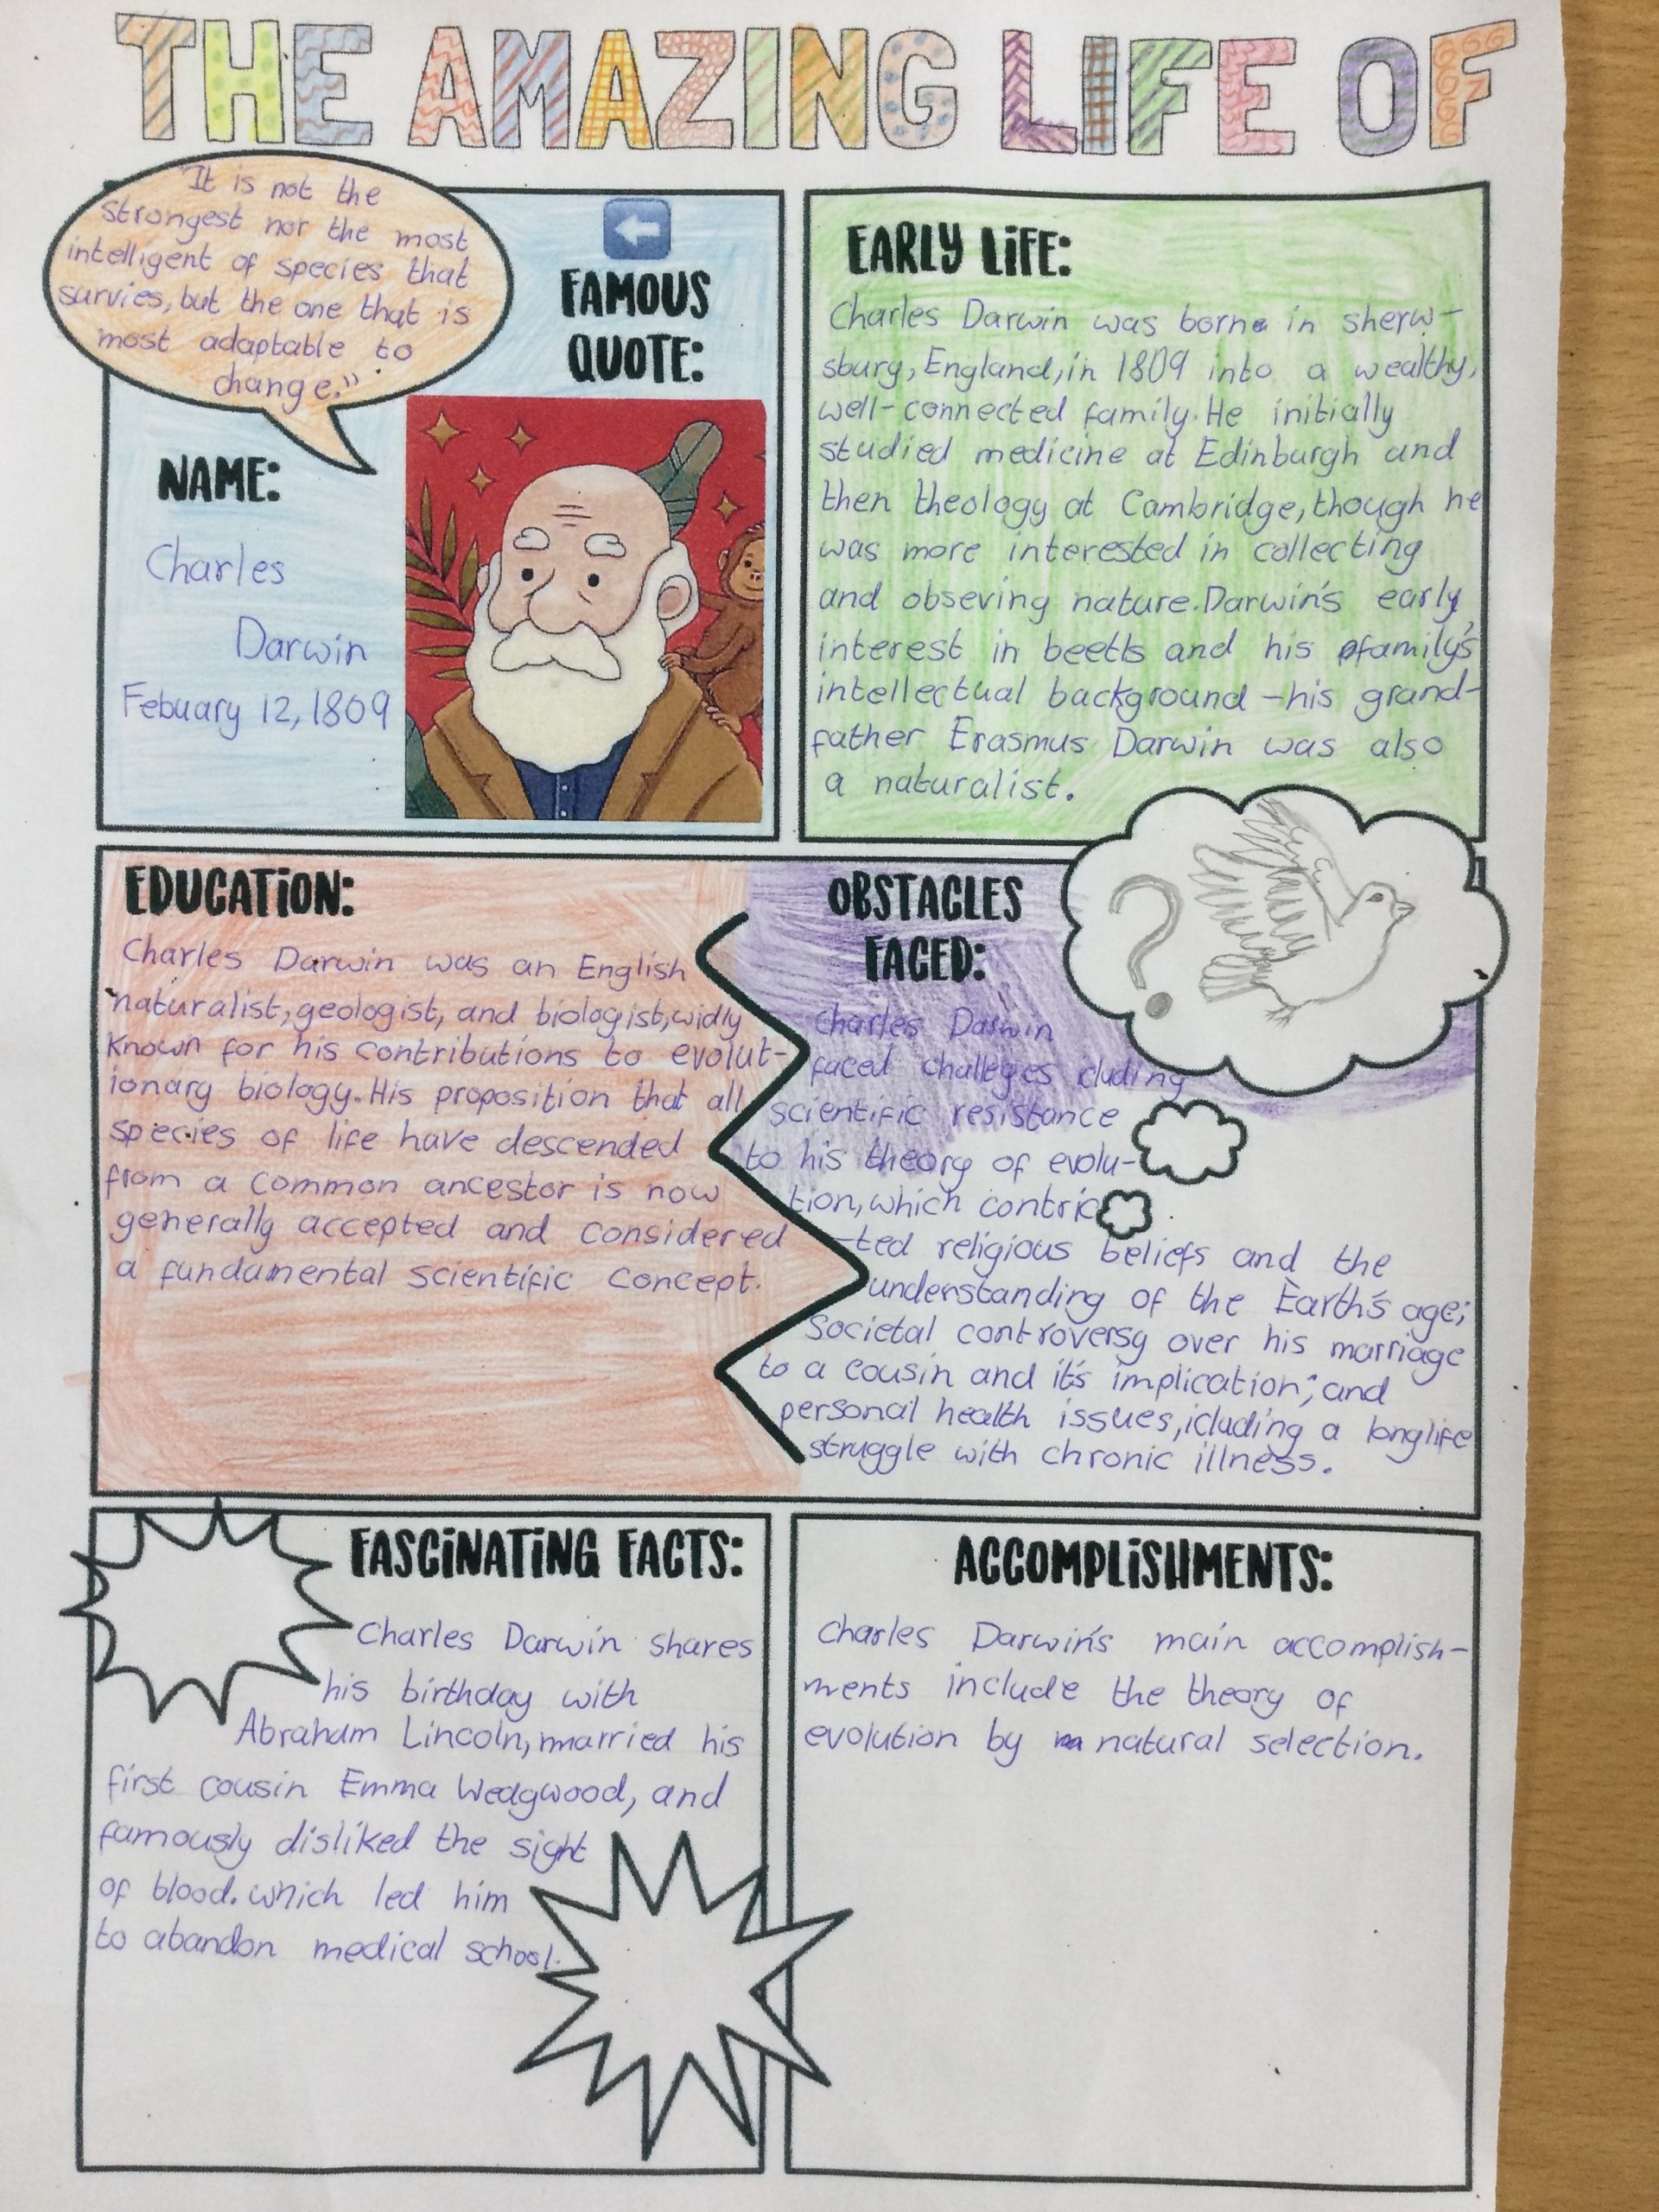 THE AMAZING LIFE OF
"It is not the
strongest nor the most
intelligent of species that
survies, but the one that is
most adaptable to
change."
FAMOUS
QUOTE:
NAME:
Charles
Darwin
Febuary 12, 1809
EARLY LIFE:
Charles Darwin was borne in sherw-
sbury, England, in 1809 into a wealthy,
well-connected family. He initially
studied medicine at Edinburgh and
then theology at Cambridge, though he
was more interested in collecting
and obseving nature. Darwin's early
interest in beetls and his family's
intellectual background - his grand-
father Erasmus Darwin was also
a naturalist.
EDUCATION:
Charles Darwin was an English
naturalist, geologist, and biologist, widly
known for his contributions to evolut-
ionary biology. His proposition that all
species of life have descended
from a common ancestor is now
generally accepted and considered
a fundamental scientific concept.
OBSTACLES
FACED:
?
Charles Darwin
faced challeges icluding
scientific resistance
to his theory of evolu-
tion, which contric
-ted religious beliefs and the
understanding of the Earth's age;
Societal controversy over his marriage
to a cousin and it's implication; and
personal health issues, icluding a longlife
struggle with chronic illness.
FASCINATING FACTS:
Charles Darwin shares
his birthday with
Abraham Lincoln, married his
first cousin Emma Wedgwood, and
famously disliked the sight
of blood. which led him
to abandon medical school.
ACCOMPLISHMENTS:
Charles Darwin's main accomplish-
ments include the theory of
evolution by natural selection.